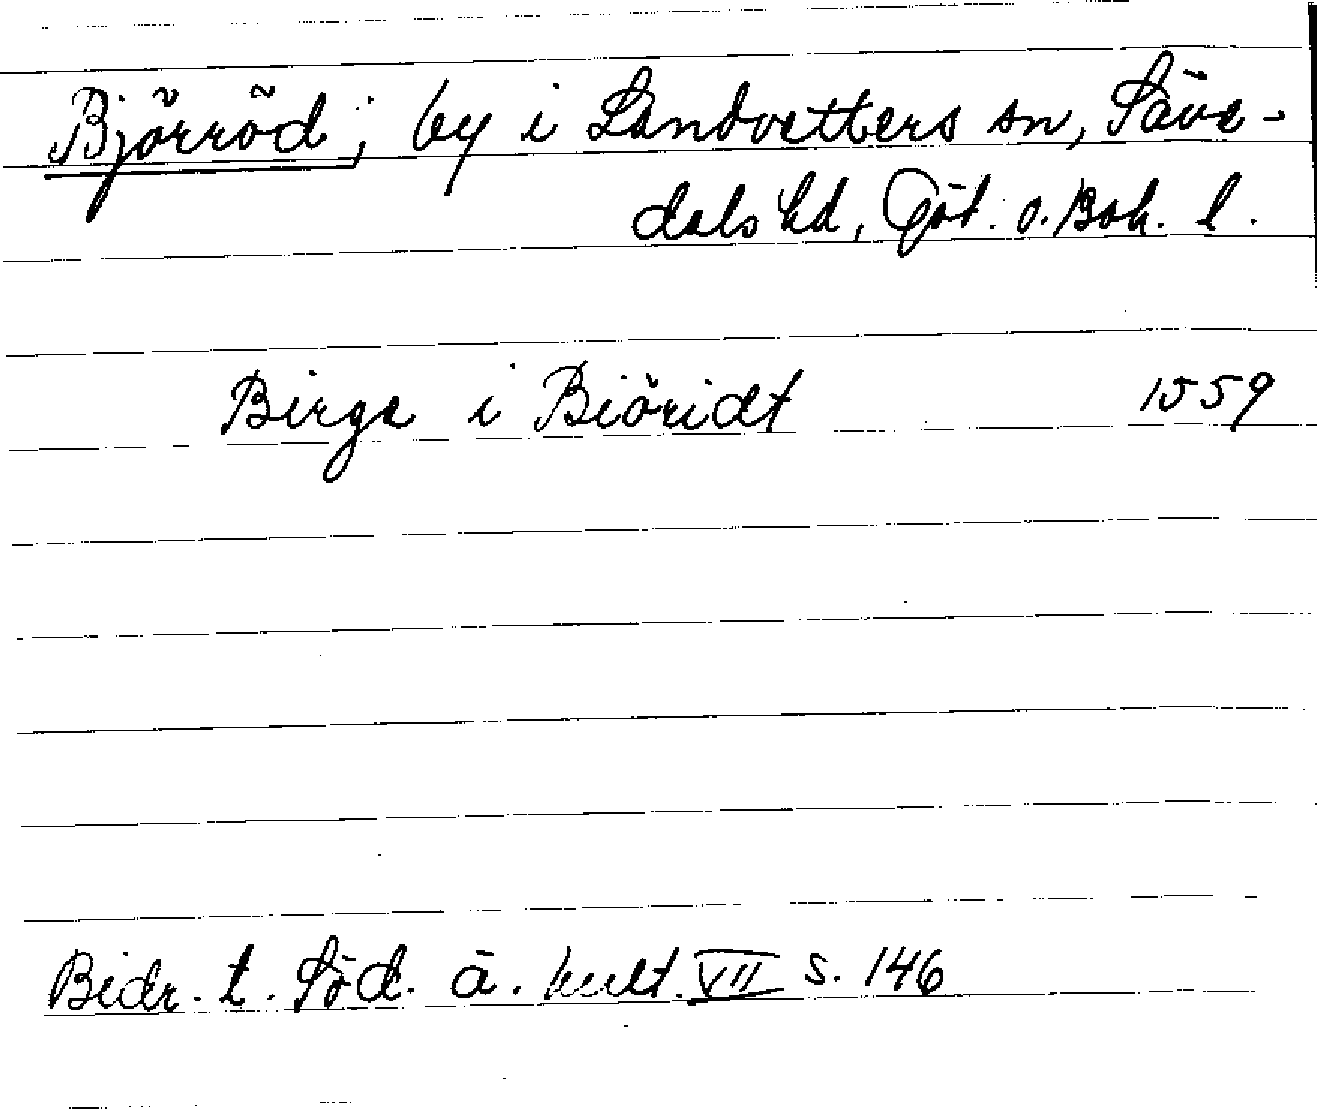 Björröd; by i Landvetters sn, Säve-
dals hd, Göt. o. Boh. l.
Birge i Biöridt 1559
Bidr. t. Söd. ä. kult. VII s. 146